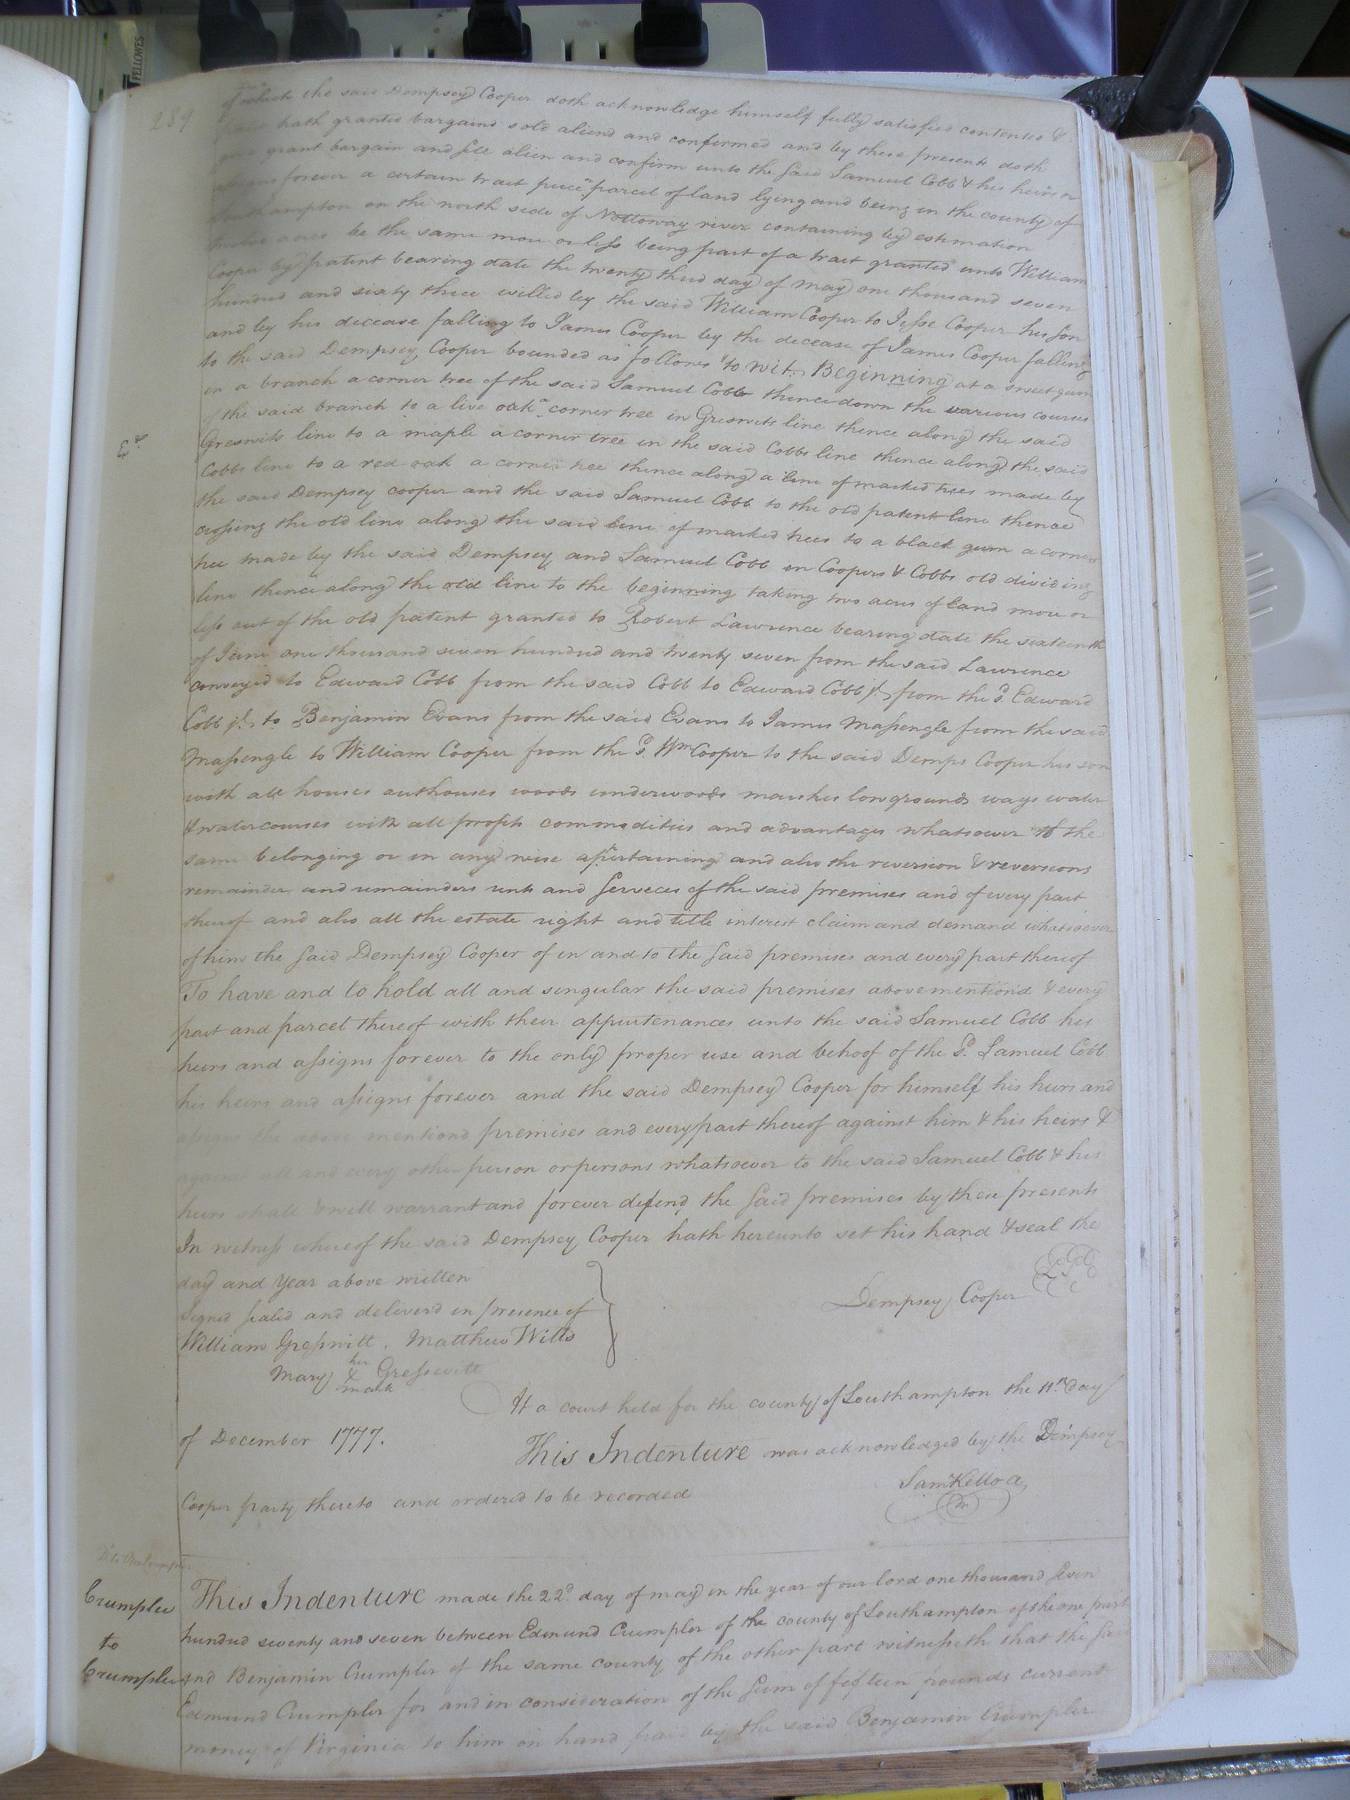 FELLOWES
289
of which the said Dempsey Cooper doth acknowledge himself fully satisfied contented &
paid hath granted bargaind sold aliend and confirmed and by these presents doth
grant bargain and sell alien and confirm unto the said Samuel Cobb & his heirs or
assigns forever a certain tract piece or parcel of land lying and being in the county of
Southampton on the north side of Nottoway river containing by estimation
acres be the same more or less being part of a tract granted unto William
Cooper by patent bearing date the twenty third day of may one thousand seven
hundred and sixty three willed by the said William Cooper to Jesse Cooper his son
and by his decease falling to James Cooper by the decease of James Cooper falling
to the said Dempsey Cooper bounded as follows to wit. Beginning at a sweet gum
in a branch a corner tree of the said Samuel Cobb thence down the various courses
of the said branch to a live oak a corner tree in Greswits line thence along the said
Greswits line to a maple a corner tree in the said Cobbs line thence along the said
Cobbs line to a red oak a corner tree thence along a line of marked trees made by
the said Dempsey cooper and the said Samuel Cobb to the old patent line thence
crossing the old line along the said line of marked trees to a black gum a corner
tree made by the said Dempsey and Samuel Cobb in Coopers & Cobbs old dividing
line thence along the old line to the beginning taking two acres of land more or
less out of the old patent granted to Robert Lawrence bearing date the sixteenth
of June one thousand seven hundred and twenty seven from the said Lawrence
conveyed to Edward Cobb from the said Cobb to Edward Cobb jr. from the sd. Edward
Cobb jr. to Benjamin Evans from the said Evans to James Massengle from the said
Massengle to William Cooper from the sd. Wm Cooper to the said Demps Cooper his son
with all houses outhouses woods underwoods marshes lowgrounds ways water
& watercourses with all profits commodities and advantages whatsoever to the
same belonging or in any wise appertaining and also the reversion & reversions
remainder and remainders rents and services of the said premises and of every part
thereof and also all the estate right and title interest claim and demand whatsoever
of him the said Dempsey Cooper of in and to the said premises and every part thereof
To have and to hold all and singular the said premises above mentiond & every
part and parcel thereof with their appurtenances unto the said Samuel Cobb his
heirs and assigns forever to the only proper use and behoof of the sd. Samuel Cobb
his heirs and assigns forever and the said Dempsey Cooper for himself his heirs and
assigns the above mentiond premises and every part thereof against him & his heirs &
against all and every other person or persons whatsoever to the said Samuel Cobb & his
heirs shall & will warrant and forever defend the said premises by these presents
In witness whereof the said Dempsey Cooper hath hereunto set his hand & seal the
day and year above written
Signd seald and deliverd in presence of
Dempsey Cooper
William Gresswitt, Matthew Wills
her
Mary X Gresswitt
mark
At a court held for the county of Southampton the 11th day
of December 1777.
This Indenture was acknowledged by the Dempsey
Cooper party thereto and ordered to be recorded
Saml Kello
Crumpler
to
Crumpler
This Indenture made the 22d. day of may in the year of our lord one thousand seven
hundred seventy and seven between Edmund Crumpler of the county of Southampton of the one part
and Benjamin Crumpler of the same county of the other part witnesseth that the said
Edmund Crumpler for and in consideration of the sum of fifteen pounds current
money of Virginia to him in hand paid by the said Benjamin Crumpler